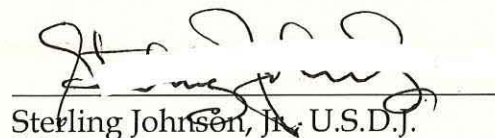 Sterling Johnson, Jr., U.S.D.J.